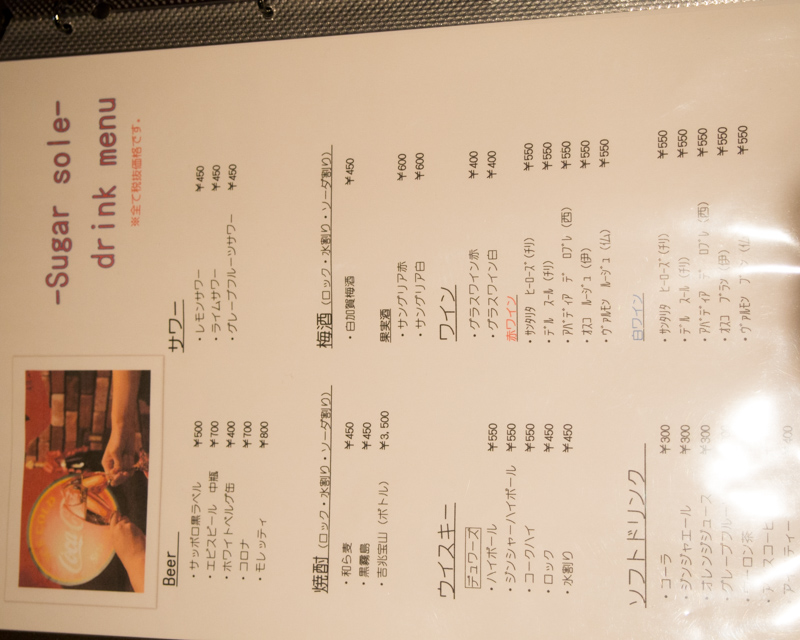 -Sugar sole-
drink menu
※全て税抜価格です。
Coca-Cola
Beer
・サッポロ黒ラベル ¥500
・エビスビール 中瓶 ¥700
・ホワイトベルグ缶 ¥400
・コロナ ¥700
・モレッティ ¥800
サワー
・レモンサワー ¥450
・ライムサワー ¥450
・グレープフルーツサワー ¥450
焼酎(ロック・水割り・ソーダ割り)
・和ら麦 ¥450
・黒霧島 ¥450
・吉兆宝山(ボトル) ¥3,500
梅酒(ロック・水割り・ソーダ割り)
・白加賀梅酒 ¥450
果実酒
・サングリア赤 ¥600
・サングリア白 ¥600
ウイスキー
デュワーズ
・ハイボール ¥550
・ジンジャーハイボール ¥550
・コークハイ ¥550
・ロック ¥450
・水割り ¥450
ワイン
・グラスワイン赤 ¥400
・グラスワイン白 ¥400
赤ワイン
・ｻﾝﾀﾘﾀ ﾋｰﾛｰｽﾞ(ﾁﾘ) ¥550
・ﾃﾞﾙ ｽｰﾙ(ﾁﾘ) ¥550
・ｱﾊﾞﾃﾞｨｱ ﾃﾞ ﾛﾌﾞﾚ(西) ¥550
・ｵｽｺ ﾙｰｼﾞｭ(伊) ¥550
・ｳﾞｧﾙﾓﾝ ﾙｰｼﾞｭ(仏) ¥550
ソフトドリンク
・コーラ ¥300
・ジンジャエール ¥300
・オレンジジュース ¥300
・グレープフルー
ーロン茶
スコーヒ
ティー 400
白ワイン
・ｻﾝﾀﾘﾀ ﾋｰﾛｰｽﾞ(ﾁﾘ) ¥550
・ﾃﾞﾙ ｽｰﾙ(ﾁﾘ) ¥550
・ｱﾊﾞﾃﾞｨｱ ﾃﾞ ﾛﾌﾞﾚ(西) ¥550
・ｵｽｺ ﾌﾞﾗﾝ(伊) ¥550
・ｳﾞｧﾙﾓﾝ ﾌﾞﾗﾝ(仏 ¥550